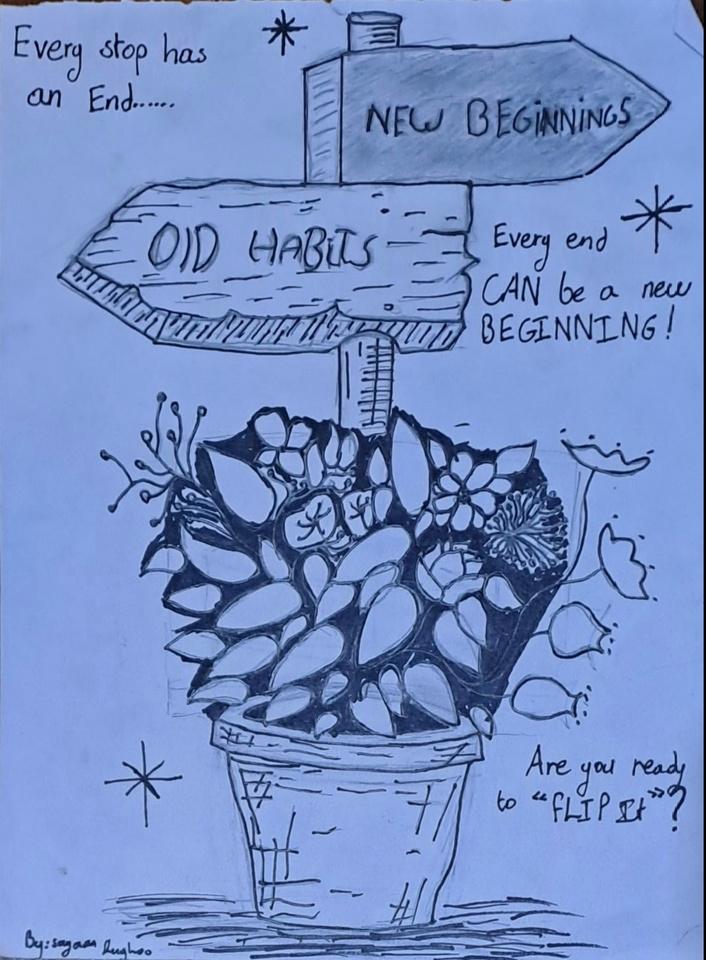 Every stop has
an End......
NEW BEGiNNiNGS
OlD HABitS
Every end
CAN be a new
BEGINNING!
Are you ready
to "fLIP It"?
By: